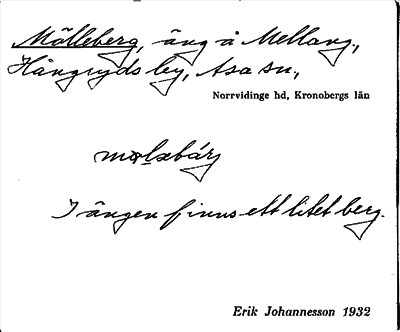 Mölleberg, äng å Mellang.,
Hångryds by, Asa sn,
Norrvidinge hd, Kronobergs län
I ängen finns ett litet berg.
Erik Johannesson 1932